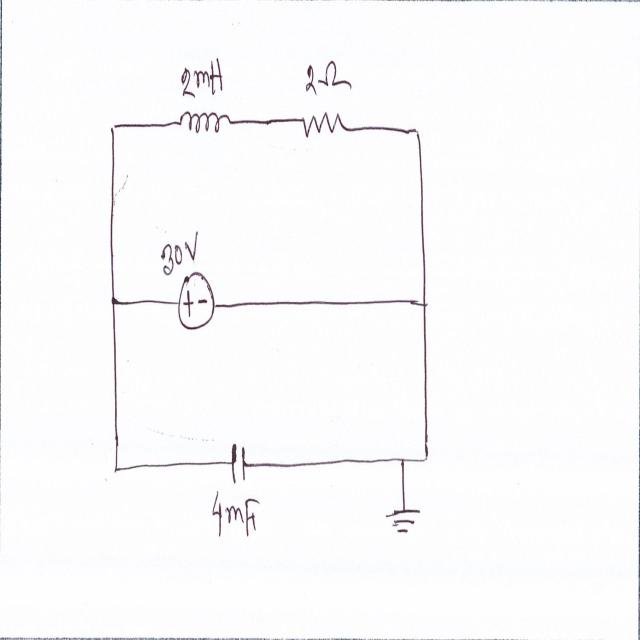 2mH 2Ω
30V
+ -
4mF